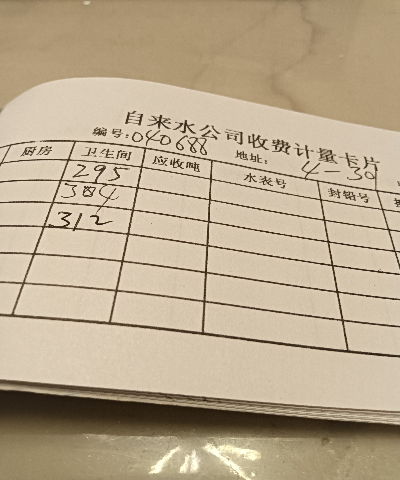 自来水公司收费计量卡片
编号:040688 地址: 4-30
厨房 卫生间 应收吨 水表号 封铅号
295
304
312